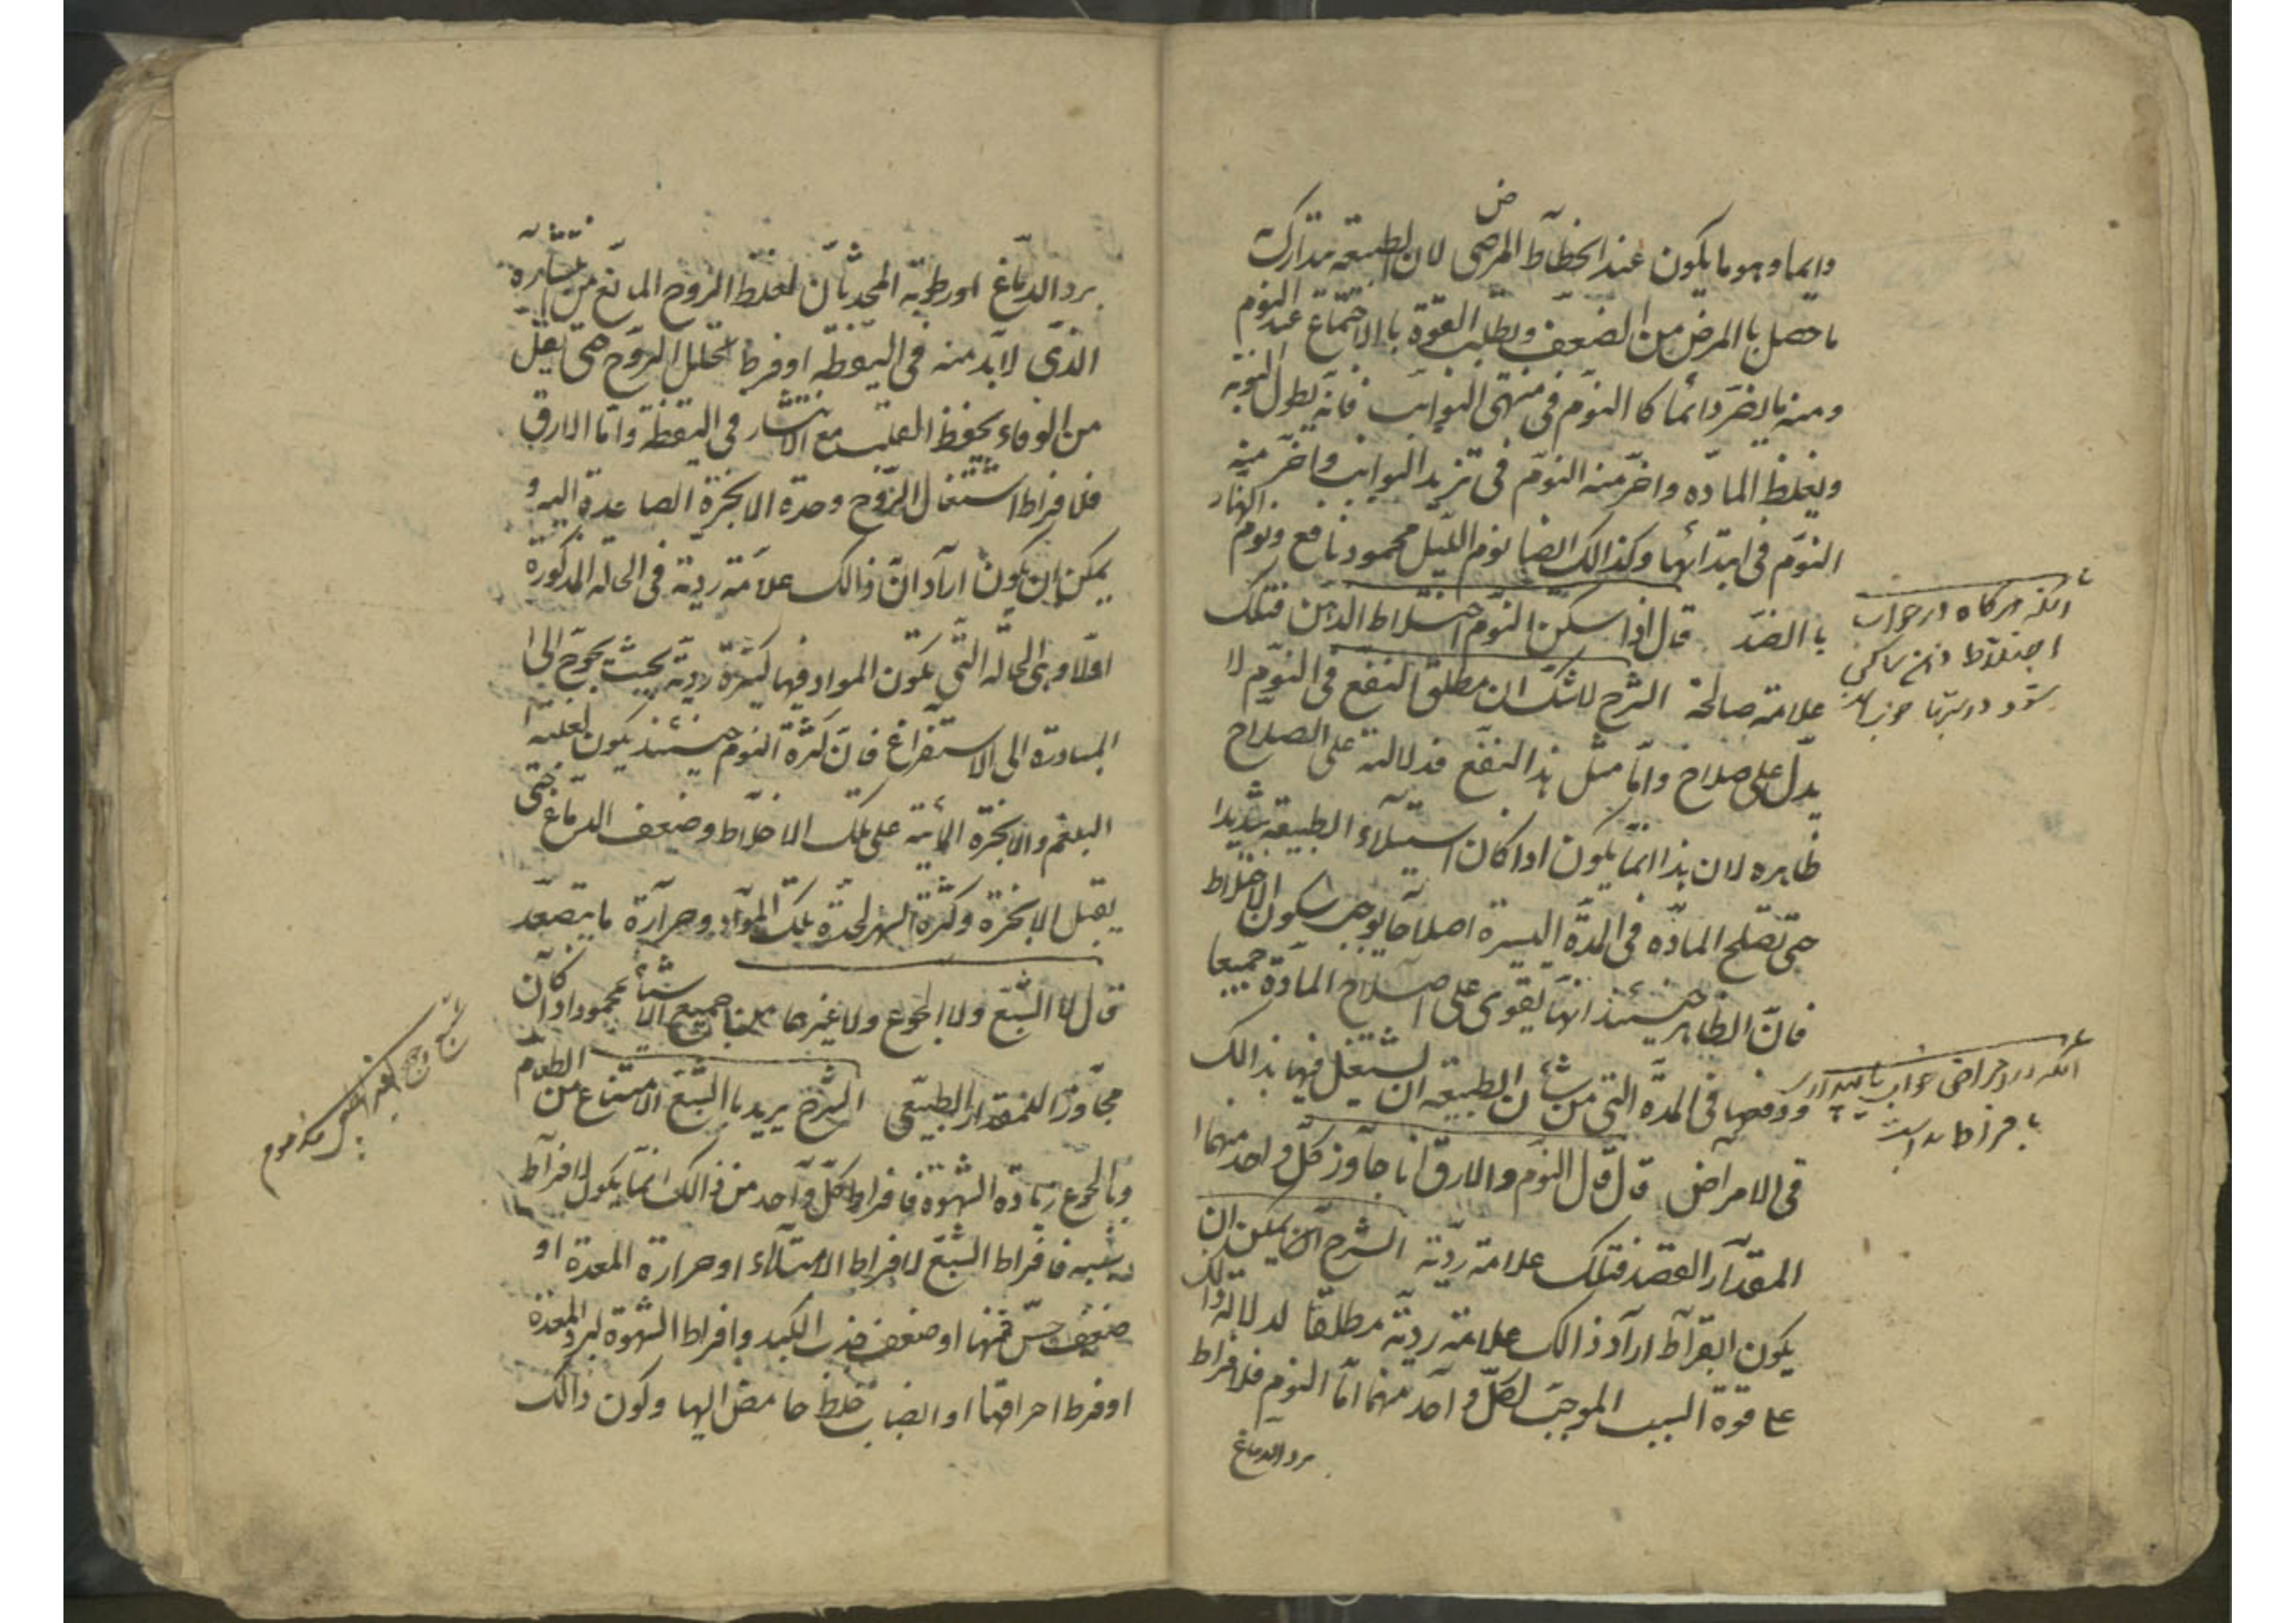 دایما و هو ما یکون عند انحطاط المرض لان الطبیعة تدارک
ما حصل بالمرض من الضعف و بطلب القوة باالاجتماع عند النوم
و منه ما یضر دائما کاالنوم فی منتهی النوایب فانه یطول النوبه
و یغلظ المادّه و اضرّ منه النوم فی تزید النوایب و اضر منه
النوم فی ابتدائها و کذالک ایضا نوم اللیل محمود نافع و نوم النهار
باالضد قال اذا سکّن النوم اختلاط الذهن فتلک
علامة صالحة الشرح لاشک ان مطلق النفع فی النوم لا
یدل علی صلاح و امّا مثل هذا النفع فدلالته علی الصلاح
ظاهره لان هذا انما یکون اذا کان استیلاء الطبیعة شدیدا
حتی تصلح المادّه فی المدة الیسیرة اصلاحا یوجب سکون الاختلاط
فانّ الظاهر حینئذ انها یقوی علی اصلاح المادة جمیعا
و دفعها فی المدة التی من شأن الطبیعة ان یشتغل فیها بذالک
فی الامراض قال قال النوم و الارق اذا جاوز کل واحد منهما
المقدار القصد فتلک علامة ردیّة الشرح یمکن ان
یکون ابقراط اراد ذالک علامة ردیة مطلقا لدلالة ذالک
علی قوة السبب الموجب لکل واحد منهما امّا النوم فلافراط
برد الدماغ
آنکه هرگاه از خواب
اختلاط ذهن ساکن
شود
آنکه در امراض خواب
بافراط
برد الدماغ او رطوبة المحدثان لغلظ الروح المانع من انتشاره
الذی لا بد منه فی الیقظه او فرط تحلیل الروح حتی یقل
من الوفاء بحفظ القلب مع الانتشار فی الیقظه و امّا الارق
فلافراط اشتعال الروح و حدة الابخرة الصاعدة الیه و
یمکن ان یکون اراد انّ ذالک علامة ردیة فی الحالة المذکورة
اوّلا و هی الحالة التی یکون المواد فیها کثیرة ردیة بحیث یحوج الی
المبادرة الی الاستفراغ فان کثرة النوم حینئذ یکون لغلبة
البلغم و الابخرة المائیة علی تلک الاخلاط و ضعف الدماغ حتی
یقبل الابخرة و کثرة السهر لحدة تلک المواد و حرارة ما یتصعد
قال لا الشبع و لا الجوع و لا غیرها من جمیع الاشیاء محمود اذا کان
مجاوزا للمقدار الطبیعی الشرح یرید باالشبع الامتناع من الطعام
و باالجوع زیادة الشهوة فافراط کل واحد من ذالک انما یکون لافراط
سببه فافراط الشبع لافراط الامتلاء او حرارة المعدة او
ضعف حس فمها او ضعف جذب الکبد و افراط الشهوة لبرد المعدة
او فرط احراقها او انصباب خلط حامض الیها و کون ذالک